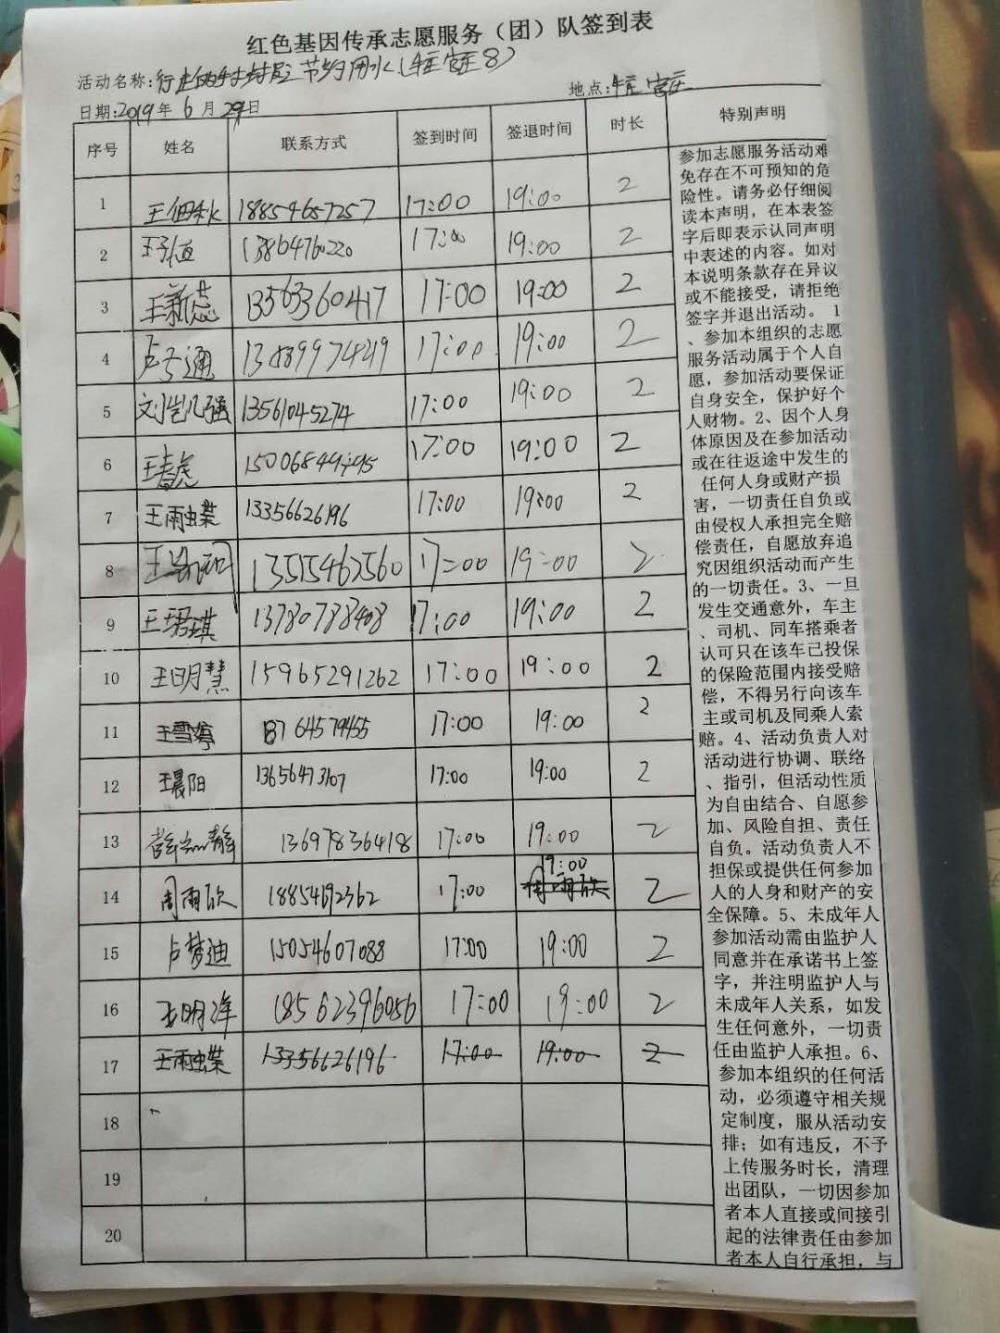 红色基因传承志愿服务（团）队签到表
活动名称: 节约用水
日期:2019年 6 月 29日
地点:
序号 姓名 联系方式 签到时间 签退时间 时长 特别声明
1 18854657257 17:00 19:00 2
2 13864760220 17:00 19:00 2
3 王新蕊 13563360417 17:00 19:00 2
4 卢子通 13789974219 17:00 19:00 2
5 刘凯强 13561045274 17:00 19:00 2
6 王春虎 17:00 19:00 2
7 王雨蝶 13356626196 17:00 19:00 2
8 13515462560 17:00 19:00 2
9 王珺琪 13780788408 17:00 19:00 2
10 王明慧 15965291262 17:00 19:00 2
11 王雪婷 17:00 19:00 2
12 王晨阳 13656473107 17:00 19:00 2
13 13697836418 17:00 19:00 2
14 周雨欣 18854692362 17:00 19:00 2
周雨欣
15 卢梦迪 15054607088 17:00 19:00 2
16 王明洋 18562396056 17:00 19:00 2
17 王雨蝶 13356626196 17:00 19:00 2
18
19
20
参加志愿服务活动难
免存在不可预知的危
险性。请务必仔细阅
读本声明，在本表签
字后即表示认同声明
中表述的内容。如对
本说明条款存在异议
或不能接受，请拒绝
签字并退出活动。 1
、参加本组织的志愿
服务活动属于个人自
愿，参加活动要保证
自身安全，保护好个
人财物。2、因个人身
体原因及在参加活动
或在往返途中发生的
任何人身或财产损
害，一切责任自负或
由侵权人承担完全赔
偿责任，自愿放弃追
究因组织活动而产生
的一切责任。3、一旦
发生交通意外，车主
、司机、同车搭乘者
认可只在该车已投保
的保险范围内接受赔
偿，不得另行向该车
主或司机及同乘人索
赔。4、活动负责人对
活动进行协调、联络
、指引，但活动性质
为自由结合、自愿参
加、风险自担、责任
自负。活动负责人不
担保或提供任何参加
人的人身和财产的安
全保障。5、未成年人
参加活动需由监护人
同意并在承诺书上签
字，并注明监护人与
未成年人关系，如发
生任何意外，一切责
任由监护人承担。6、
参加本组织的任何活
动，必须遵守相关规
定制度，服从活动安
排；如有违反，不予
上传服务时长，清理
出团队，一切因参加
者本人直接或间接引
起的法律责任由参加
者本人自行承担，与